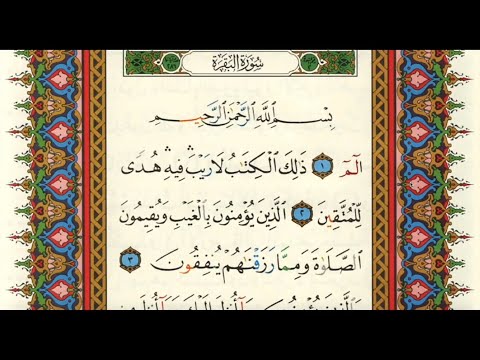 سُورَةُ البَقَرَةِ
بِسْمِ ٱللَّهِ ٱلرَّحْمَٰنِ ٱلرَّحِيمِ
الٓمٓ ١ ذَٰلِكَ ٱلْكِتَٰبُ لَا رَيْبَ ۛ فِيهِ ۛ هُدًى
لِّلْمُتَّقِينَ ٢ ٱلَّذِينَ يُؤْمِنُونَ بِٱلْغَيْبِ وَيُقِيمُونَ
ٱلصَّلَوٰةَ وَمِمَّا رَزَقْنَٰهُمْ يُنفِقُونَ ٣